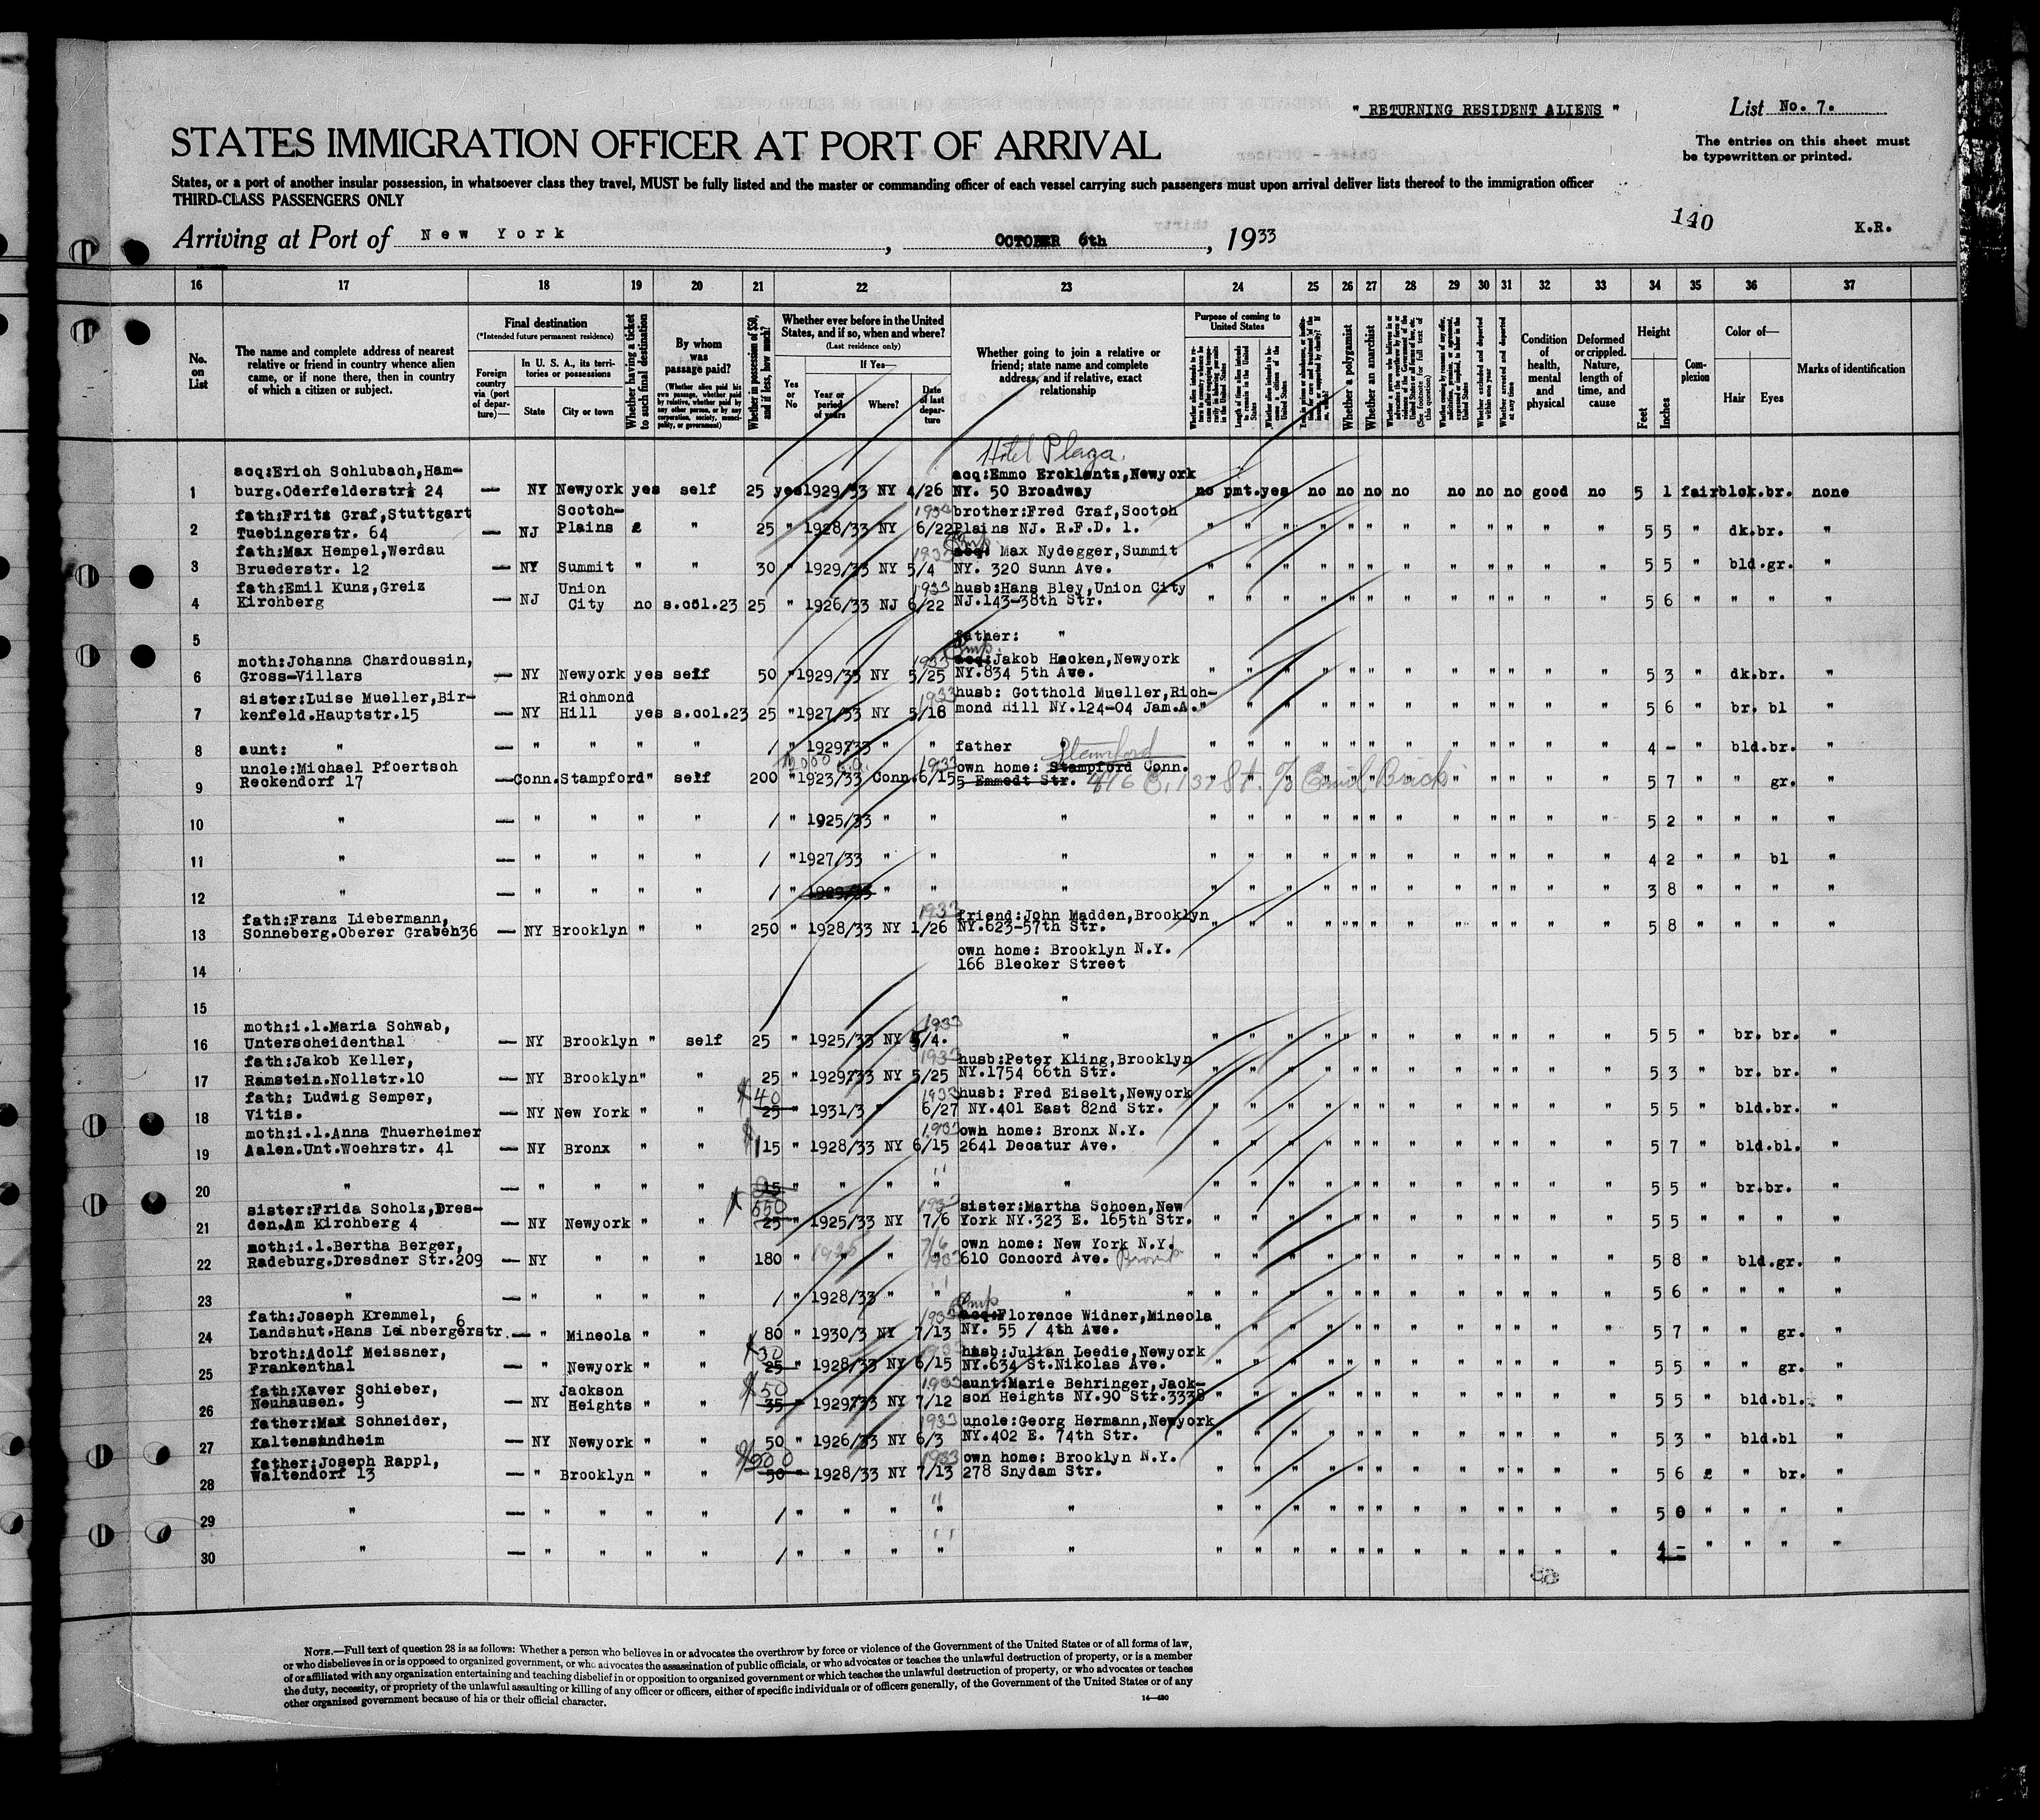 " RETURNING RESIDENT ALIENS "
List No. 7.
STATES IMMIGRATION OFFICER AT PORT OF ARRIVAL
The entries on this sheet must
be typewritten or printed.
States, or a port of another insular possession, in whatsoever class they travel, MUST be fully listed and the master or commanding officer of each vessel carrying such passengers must upon arrival deliver lists thereof to the immigration officer
THIRD-CLASS PASSENGERS ONLY
140
K.R.
Arriving at Port of New York, OCTOBER 6th, 1933
16 17 18 19 20 21 22 23 24 25 26 27 28 29 30 31 32 33 34 35 36 37
No. on List
The name and complete address of nearest relative or friend in country whence alien came, or if none there, then in country of which a citizen or subject.
Final destination
(*Intended future permanent residence)
Foreign country via (port of departure)—
In U. S. A., its territories or possessions
State
City or town
Whether having a ticket to such final destination
By whom was passage paid?
(Whether alien paid his own passage, whether paid by relative, whether paid by any other person, or by any corporation, society, municipality, or government)
Whether in possession of $50, and if less, how much?
Whether ever before in the United States, and if so, when and where?
(Last residence only)
Yes or No
If Yes—
Year or period of years
Where?
Date of last departure
Whether going to join a relative or friend; state name and complete address, and if relative, exact relationship
Purpose of coming to United States
Length of time alien intends to remain in the United States
Whether a polygamist
Whether an anarchist
Whether arrested and deported at any time
Condition of health, mental and physical
Deformed or crippled. Nature, length of time, and cause
Height
Feet
Inches
Complexion
Color of—
Hair
Eyes
Marks of identification
Hotel Plaza.
acq:Erich Schlubach,Ham- acq:Emmo Ercklentz,Newyork
1 burg.Oderfelderstr. 24 — NY Newyork yes self 25 yes 1929/33 NY 4/26 NY. 50 Broadway no pmt.yes no no no no no no no good no 5 1 fair blck.br. none
fath:Fritz Graf,Stuttgart Scotch- 1933 brother:Fred Graf,Scotch
2 Tuebingerstr. 64 — NJ Plains " 25 " 1928/33 NY 6/22 Plains NJ. R.F.D. 1. " " " " " " " " " " " " 5 5 " dk.br. "
fath:Max Hempel,Werdau 1933 Emp. acq: Max Nydegger,Summit
3 Bruederstr. 12 — NY Summit " " 30 " 1929/33 NY 5/4 NY. 320 Sunn Ave. " " " " " " " " " " " " 5 5 " bld.gr. "
fath:Emil Kunz,Greiz Union 1933 husb:Hans Bley,Union City
4 Kirchberg — NJ City no s.col.23 25 " 1926/33 NJ 6/22 NJ.143-38th Str. " " " " " " " " " " " " 5 6 " " " "
5 father: "
moth:Johanna Chardoussin, 1933 Emp. acq:Jakob Hacken,Newyork
6 Gross-Villars — NY Newyork yes self 50 " 1929/33 NY 5/25 NY.834 5th Ave. " " " " " " " " " " " " 5 3 " dk.br. "
sister:Luise Mueller,Bir- Richmond 1933 husb: Gotthold Mueller,Rich-
7 kenfeld.Hauptstr.15 — NY Hill yes s.col.23 25 " 1927/33 NY 5/18 mond Hill NY.124-04 Jam.A. " " " " " " " " " " " " 5 6 " br. bl "
8 aunt: " — " " " " / " 1929/33 " " father " " " " " " " " " " " " " 4 - " bld.br. "
Stamford
uncle:Michael Pfoertsch 1933 own home: Stampford Conn.
9 Reckendorf 17 — Conn.Stampford " self 200 " 1923/33 Conn.6/15 5 Emmedt Str. 476 E. 137 St. c/o Emil Brick " " " " " " " 5 7 " " gr. "
10 " — " " " " / " 1925/33 " " " " " " " " " " " " " " " 5 2 " " " "
11 " — " " " " / " 1927/33 " " " " " " " " " " " " " " " 4 2 " " bl "
12 " — " " " " / " 1929/33 " " " " " " " " " " " " " " 3 8 " " " "
fath:Franz Liebermann, 1933 friend:John Madden,Brooklyn
13 Sonneberg.Oberer Graben36 — NY Brooklyn " " 250 " 1928/33 NY 1/26 NY.623-57th Str. " " " " " " " " " " " " 5 8 " " " "
own home: Brooklyn N.Y.
14 166 Blecker Street
15 "
moth:i.l.Maria Schwab, 1933
16 Unterscheidenthal — NY Brooklyn " self 25 " 1925/33 NY 5/4. " " " " " " " " " " " " " 5 5 " br. br. "
fath:Jakob Keller, 1933 husb:Peter Kling,Brooklyn
17 Ramstein.Nollstr.10 — NY Brooklyn " " 25 " 1929/33 NY 5/25 NY.1754 66th Str. " " " " " " " " " " " " 5 3 " br. br. "
fath: Ludwig Semper, $40 1933 husb: Fred Eiselt,Newyork
18 Vitis. — NY New York " " 25 " 1931/3 " 6/27 NY.401 East 82nd Str. " " " " " " " " " " " " 5 5 " bld.br. "
moth:i.l.Anna Thuerheimer 1933 own home: Bronx N.Y.
19 Aalen.Unt.Woehrstr. 41 — NY Bronx " " $115 " 1928/33 NY 6/15 2641 Decatur Ave. " " " " " " " " " " " " 5 7 " bld.bl. "
20 " — " " " " 15 " " " " " " " " " " " " " " " " " 5 5 " br.br. "
sister:Frida Scholz,Dres- 1933 sister:Martha Schoen,New
21 den.Am Kirchberg 4 — NY Newyork " " 25 " 1925/33 NY 7/6 York NY.323 E. 165th Str. " " " " " " " " " " " " 5 5 " " " "
moth:i.l.Bertha Berger, 7/6 own home: New York N.Y.
22 Radeburg.Dresdner Str.209 — NY " " " 180 " 1925 " " 1933 610 Concord Ave. Bronx " " " " " " " " " " " " 5 8 " bld.gr. "
23 " — " " " " / " 1928/33 " " " " " " " " " " " " " " " 5 6 " " " "
fath:Joseph Kremmel, 6 1933 Emp acq:Florence Widner,Mineola
24 Landshut.Hans Leinbergerstr. — " Mineola " " 80 " 1930/3 NY 7/13 NY. 55 / 4th Ave. " " " " " " " " " " " " 5 7 " " gr. "
broth:Adolf Meissner, $30 1933 husb:Julian Leedie,Newyork
25 Frankenthal — " Newyork " " 25 " 1928/33 NY 6/15 NY.634 St.Nikolas Ave. " " " " " " " " " " " " 5 5 " " gr. "
fath:Xaver Schieber, Jackson $50 1933 aunt:Marie Behringer,Jack-
26 Neuhausen. 9 — NY Heights " " 35 " 1929/33 NY 7/12 son Heights NY.90 Str.3338 " " " " " " " " " " " " 5 5 " bld.bl. "
father:Max Schneider, 1933 uncle:Georg Hermann,Newyork
27 Kaltensundheim — NY Newyork " " 50 " 1926/33 NY 6/3 NY.402 E. 74th Str. " " " " " " " " " " " " 5 3 " bld.bl "
father:Joseph Rappl, 1933 own home: Brooklyn N.Y.
28 Waltendorf 13 — " Brooklyn " " 50 " 1928/33 NY 7/13 278 Snydam Str. " " " " " " " " " " " " 5 6 " " br. "
29 " — " " " " / " " " " " " " " " " " " " " " " " 5 0 " " " "
30 " — " " " " / " " " " " " " " " " " " " " " " " 4 - " " " "
NOTE.—Full text of question 28 is as follows: Whether a person who believes in or advocates the overthrow by force or violence of the Government of the United States or of all forms of law,
or who disbelieves in or is opposed to organized government, or who advocates the assassination of public officials, or who advocates or teaches the unlawful destruction of property, or is a member
of or affiliated with any organization entertaining and teaching disbelief in or opposition to organized government or which teaches the unlawful destruction of property, or who advocates or teaches
the duty, necessity, or propriety of the unlawful assaulting or killing of any officer or officers, either of specific individuals or of officers generally, of the Government of the United States or of any
other organized government because of his or their official character.
14—480